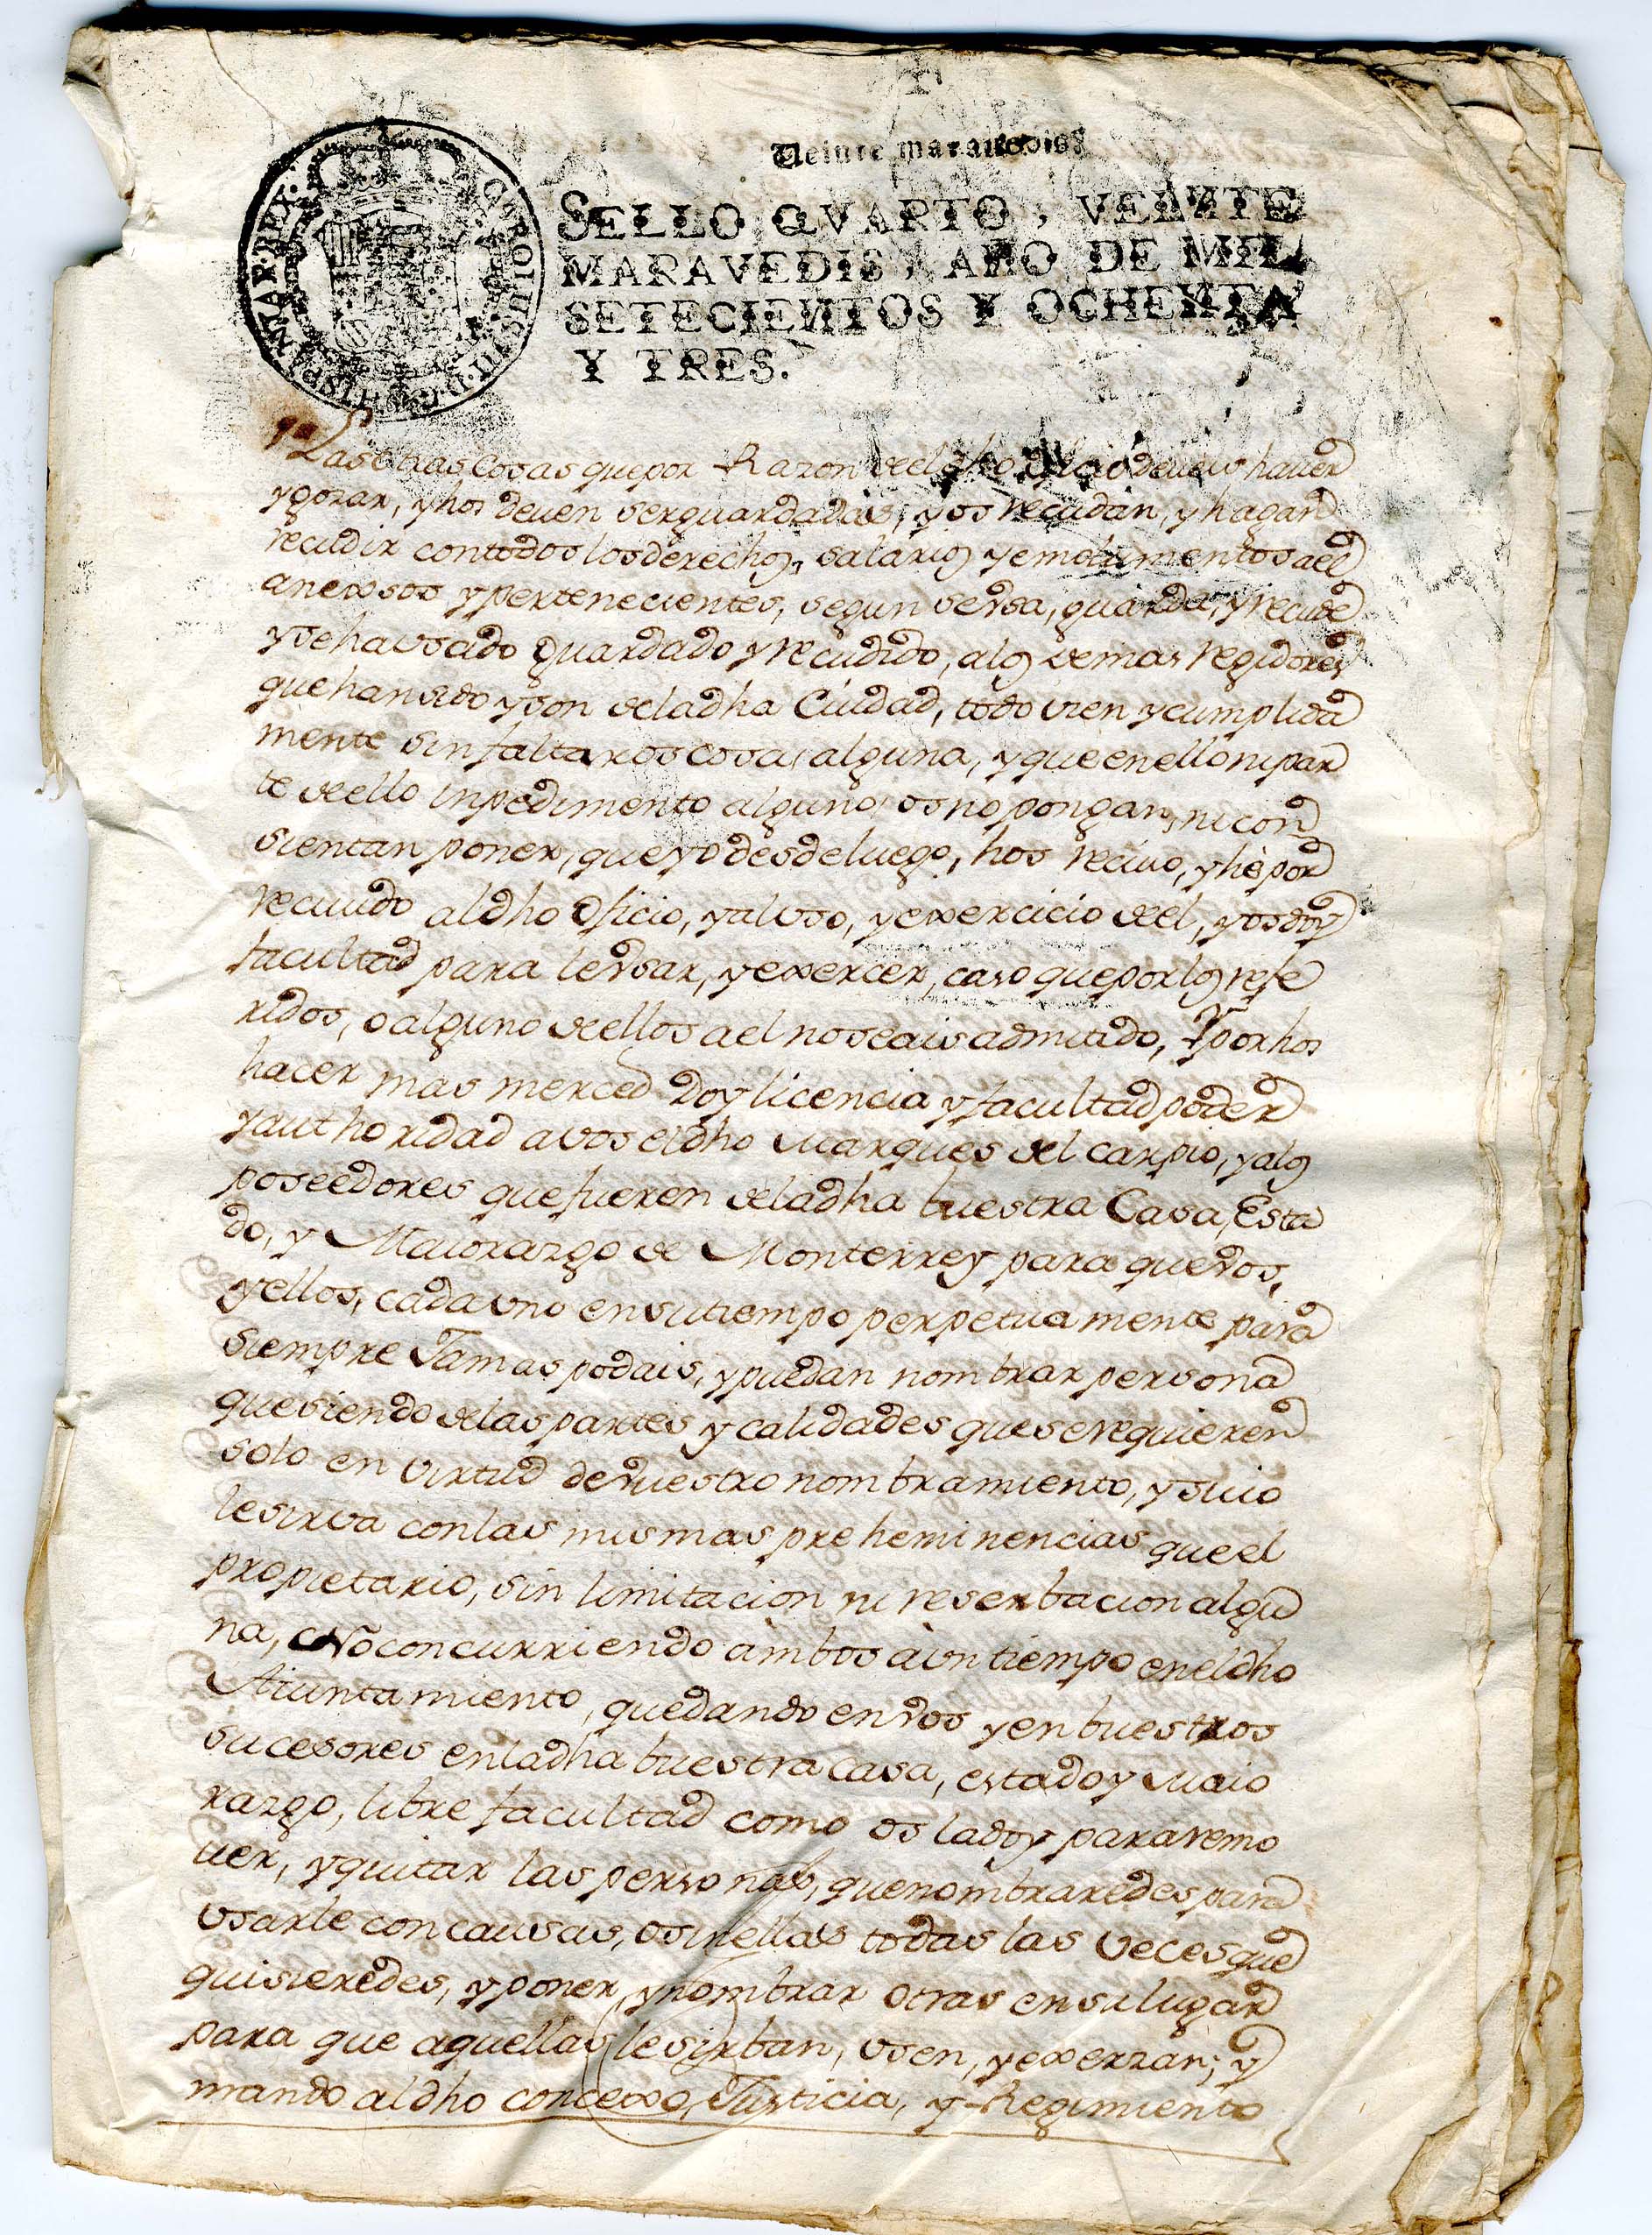 Veinte maravedis
SELLO QVARTO, VEINTE
MARAVEDIS, AÑO DE MIL
SETECIENTOS Y OCHENTA
Y TRES.
CAROLUS III D G HISPANIAR REX
Las otras Cosas que por Razon de el dho oficio deveis haver
y gozar, y hos deven ser guardadas, y os recudan, y hagan
recudir con todos los derechos, salarios y emolumentos a el
anexosos y pertenecientes, segun se vsa, guarda, y recude
y se ha vsado guardado y recudido, a los demas regidores
que han sido y son de la dha Ciudad, todo vien y cumplida
mente sin faltaros cosa alguna, y que en ello ni par
te de ello inpedimento alguno os no pongan, ni con
sientan poner, que yo desde luego, hos recivo, y hè por
recivido al dho oficio, y al vso, y exercicio de el, y os doy
facultad para le vsar, y exercer, caso que por los refe
ridos, o alguno de ellos a el no seais admitido, Y por hos
hacer mas merced Doy licencia y facultad poder
y authoridad a vos el dho Marques del carpio, y a los
poseedores que fueren de la dha buestra Casa, Esta
do, y Maiorazgo de Monterrey para que vos,
y ellos, cada vno en su tiempo perpetua mente para
siempre Jamas podais, y puedan nombrar persona
que siendo de las partes y calidades que se requieren
solo en virtud de vuestro nombramiento, y suio
le sirva con las mismas preheminencias que el
propietario, sin limitacion ni reserbacion algu
na, No concurriendo àmbos à vn tiempo en el dho
Aiuntamiento, quedando en vos y en buestros
sucesores en la dha buestra casa, estado y Maio
razgo, libre facultad como os la doy para remo
uer, y quitar las personas, que nombraredes para
vsarle con causas, o sin ellas todas las veces que
quisieredes, y poner, y nombrar otras en su lugar
para que aquellas le sirban, vsen, y exerzan; y
mando al dho concexo, Justicia, y Regimiento